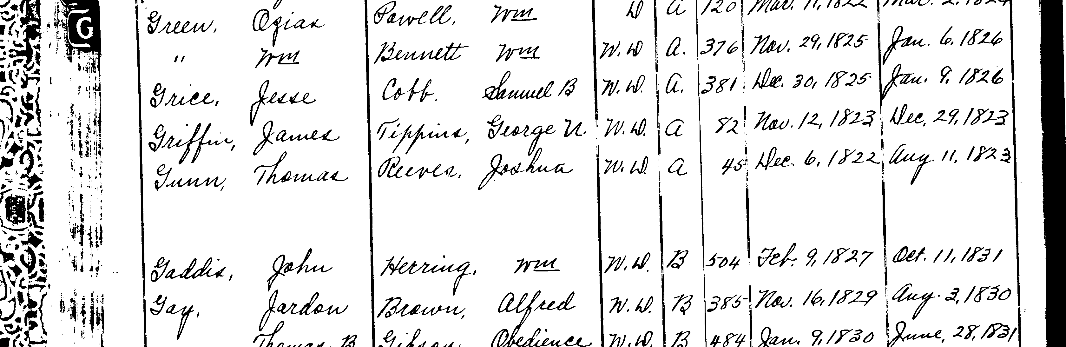 G
Green, Ozias Powell, Wm D A 120 Mar. 11, 1822 Mar. 2, 1824
" Wm Bennett Wm W.D A. 376 Nov. 29, 1825 Jan. 6, 1826
Grice, Jesse Cobb. Samuel B W.D. A. 381. Dec. 30, 1825 Jan. 9, 1826
Griffin, James Tippins, George N W.D. A 82 Nov. 12, 1823 Dec. 29, 1823
Gunn, Thomas Reeves, Joshua W.D. A 45 Dec. 6, 1822 Aug 11, 1823
Gaddis, John Herring, Wm W.D. B 504 Feb. 9, 1827 Oct. 11, 1831
Gay, Jardon Brown, Alfred W.D. B 385 Nov. 16, 1829 Aug. 3, 1830
Thomas B Gibson Obedience W.D. B 484 Jan. 9, 1830 June, 28, 1831